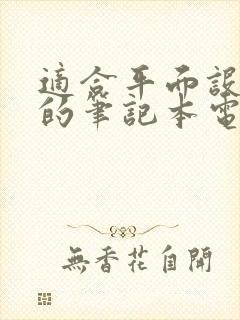 適合平面設
的筆記本電
無香花自開